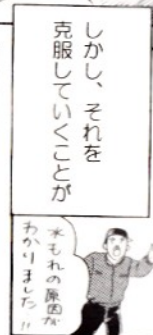 しかし、それを
克服していくことが
水もれの原因が
わかりました!!